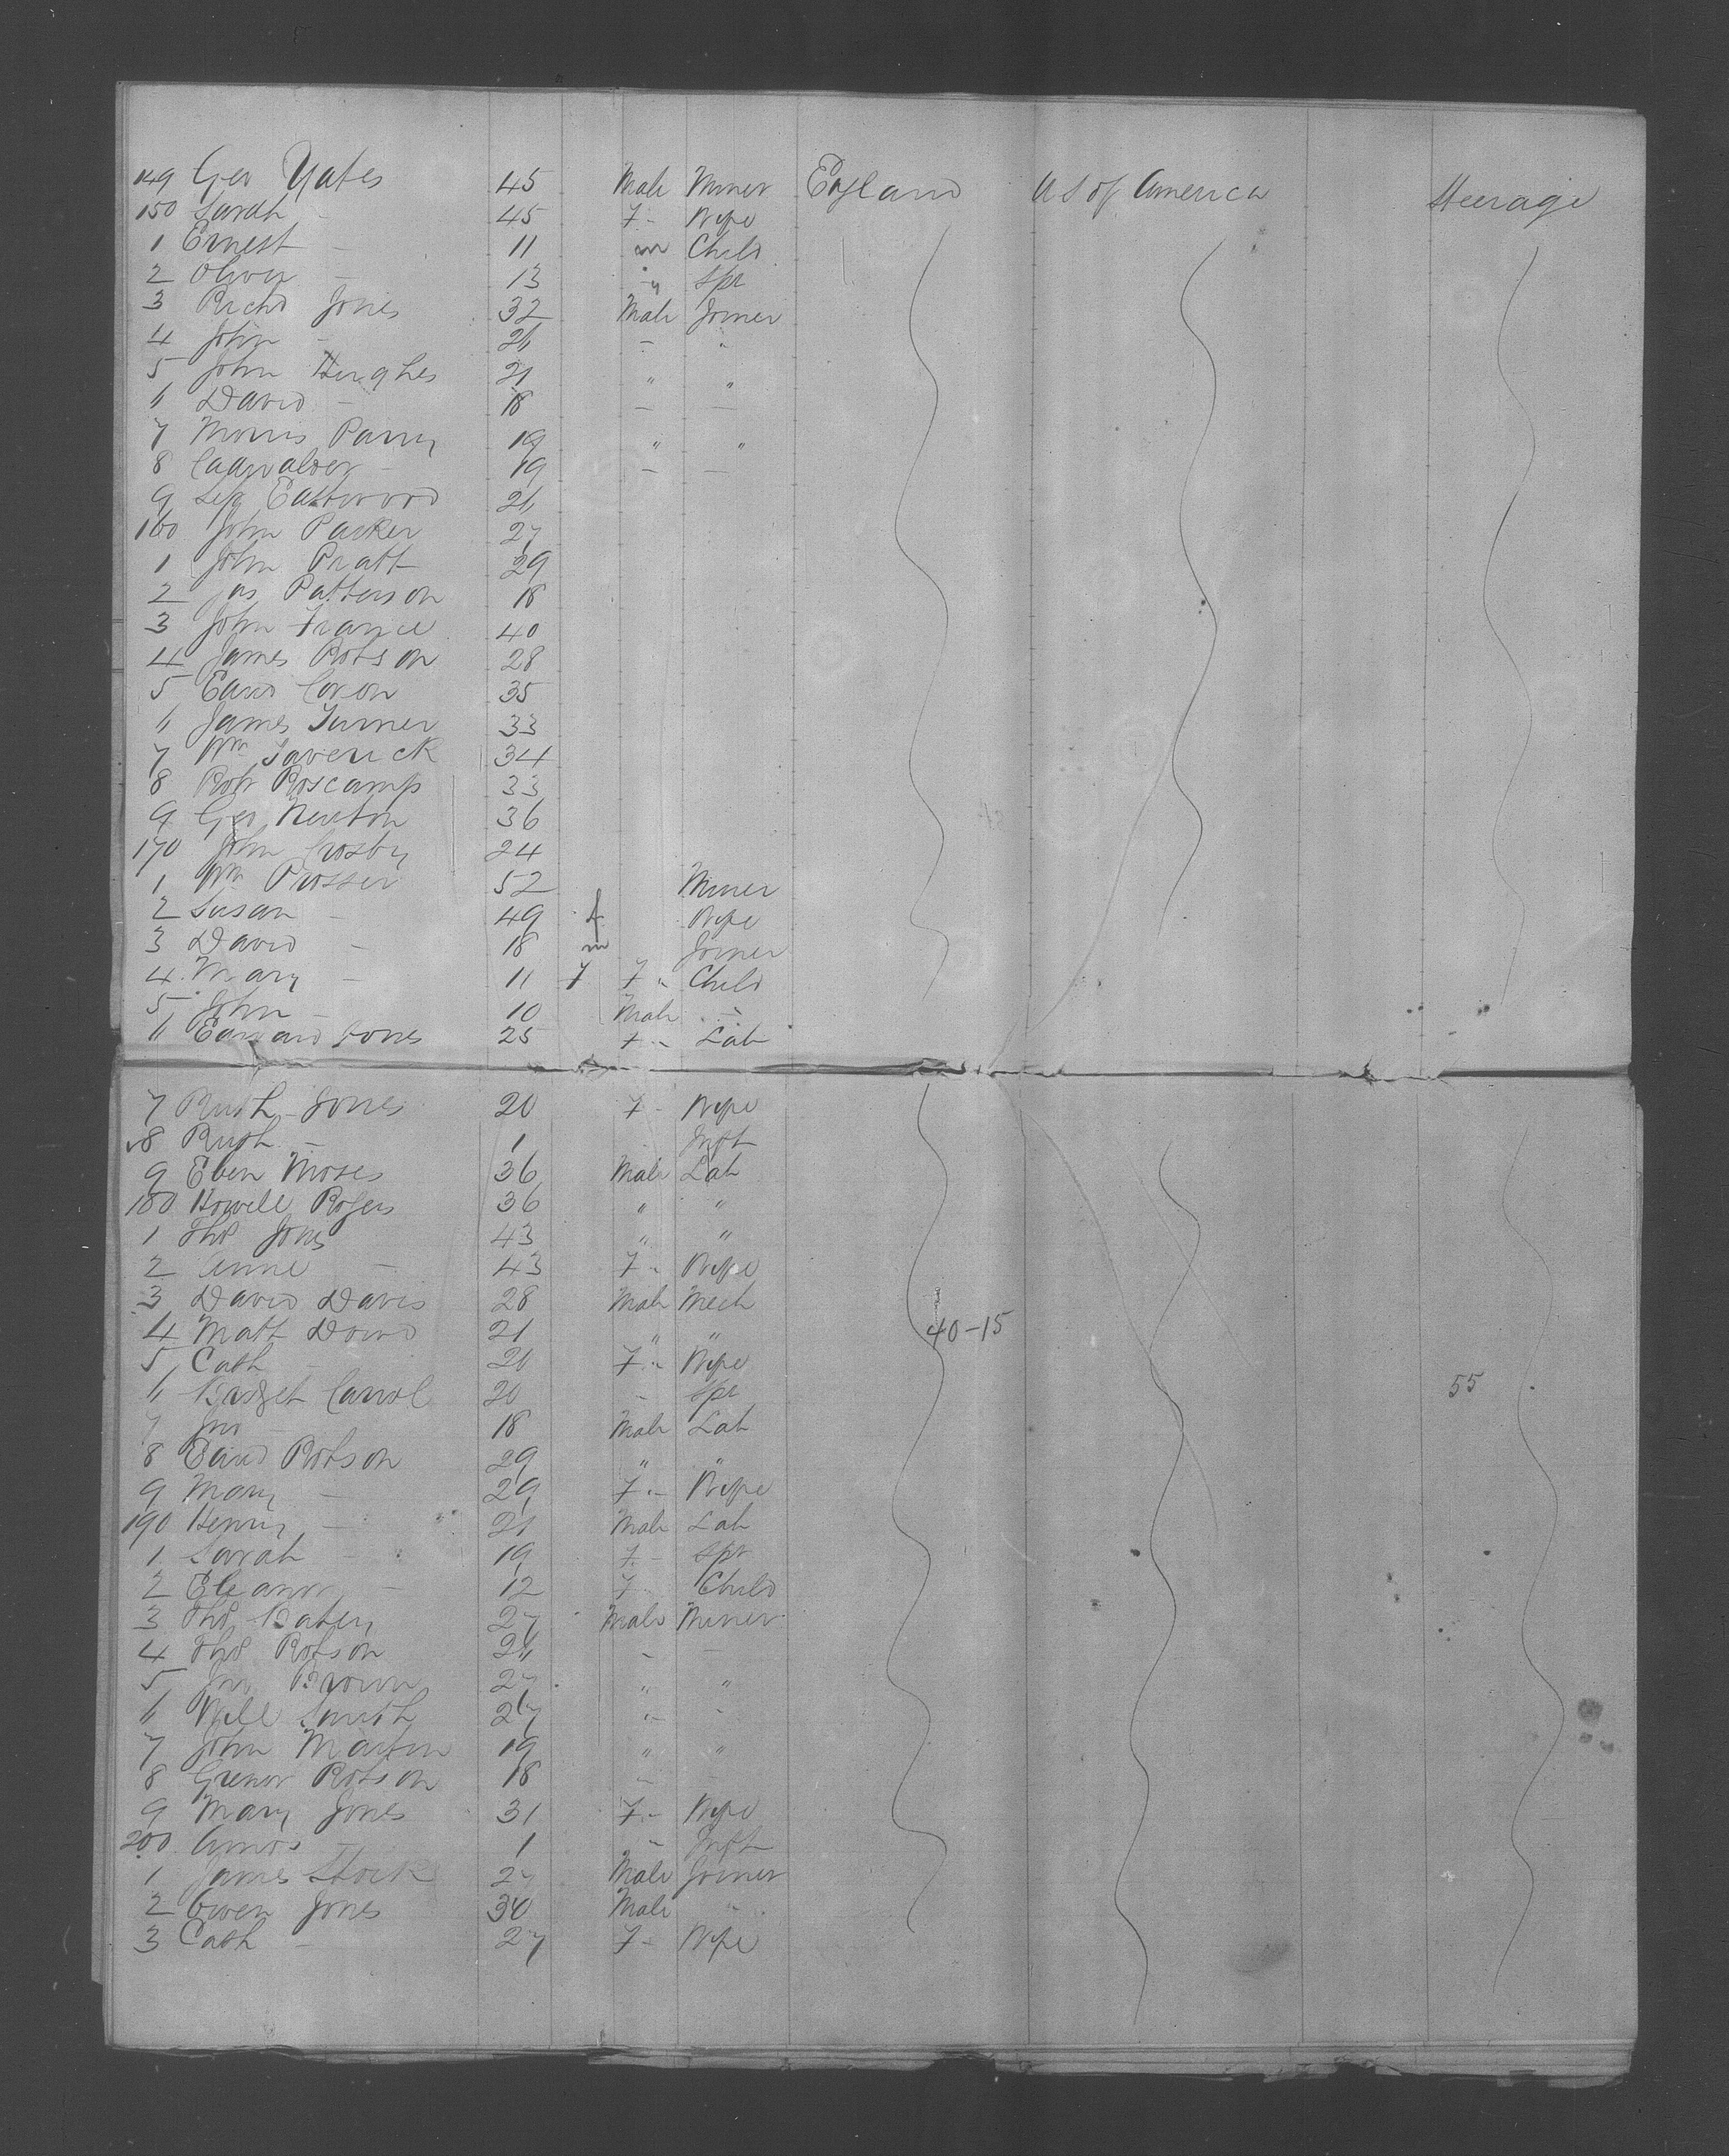 149 Geo Yates 45 Male Miner England U S of America Steerage
150 Sarah - 45 F - Wife
1 Ernest - 11 m Child
2 Oliver - 13 " Spr
3 Richd Jones 32 Male Joiner
4 John - 26 - "
5 John Hughes 21 " "
6 David - 18 - -
7 Morris Parry 19 " "
8 Cadwalder - 19 - -
9 Eastwood 26
160 John Parker 27
1 John Pratt 29
2 Jas Patterson 18
3 John France 40
4 James Robson 28
5 Edwd 35
6 James Turner 33
7 Wm Laverick 34
8 Robt Roscamp 33
9 Geo Newton 36
170 John Crosby 24
1 Wm Prosser 52 Miner
2 Susan - 49 f Wife
3 David - 18 m Joiner
4 Mary - 11 7 F " Child
5 John - 10 Male "
6 Edward Jones 25 + - Lab
7 Ruth Jones 20 F - Wife
8 Ruth - 1 Inft
9 Eben Moses 36 Male Lab
180 Howell Rogers 36 " "
1 Thos Jones 43 " "
2 Anne - 43 F " Wife
3 David Davis 28 Male Mech
4 Matt Dowd 21 " " 40-15
5 Cath - 20 F " Wife
6 Bridget Carrol 20 - Spr 55
7 Jno - 18 Male Lab
8 Edwd Robson 29 " "
9 Mary - 29 F - Wife
190 Henry - 21 Male Lab
1 Sarah - 19 F - Spr
2 Eleanor - 12 F Child
3 Thos Batey 27 Male Miner
4 Thos Robson - -
5 Jno Brown 27 " "
6 Will Smith " -
7 John Martin 19 " "
8 Robson 18 - -
9 Mary Jones 31 F - Wife
200 Amos - 1 " Inft
1 James Stock 27 Male Joiner
2 Owen Jones 30 Male "
3 Cath - 27 F - Wife